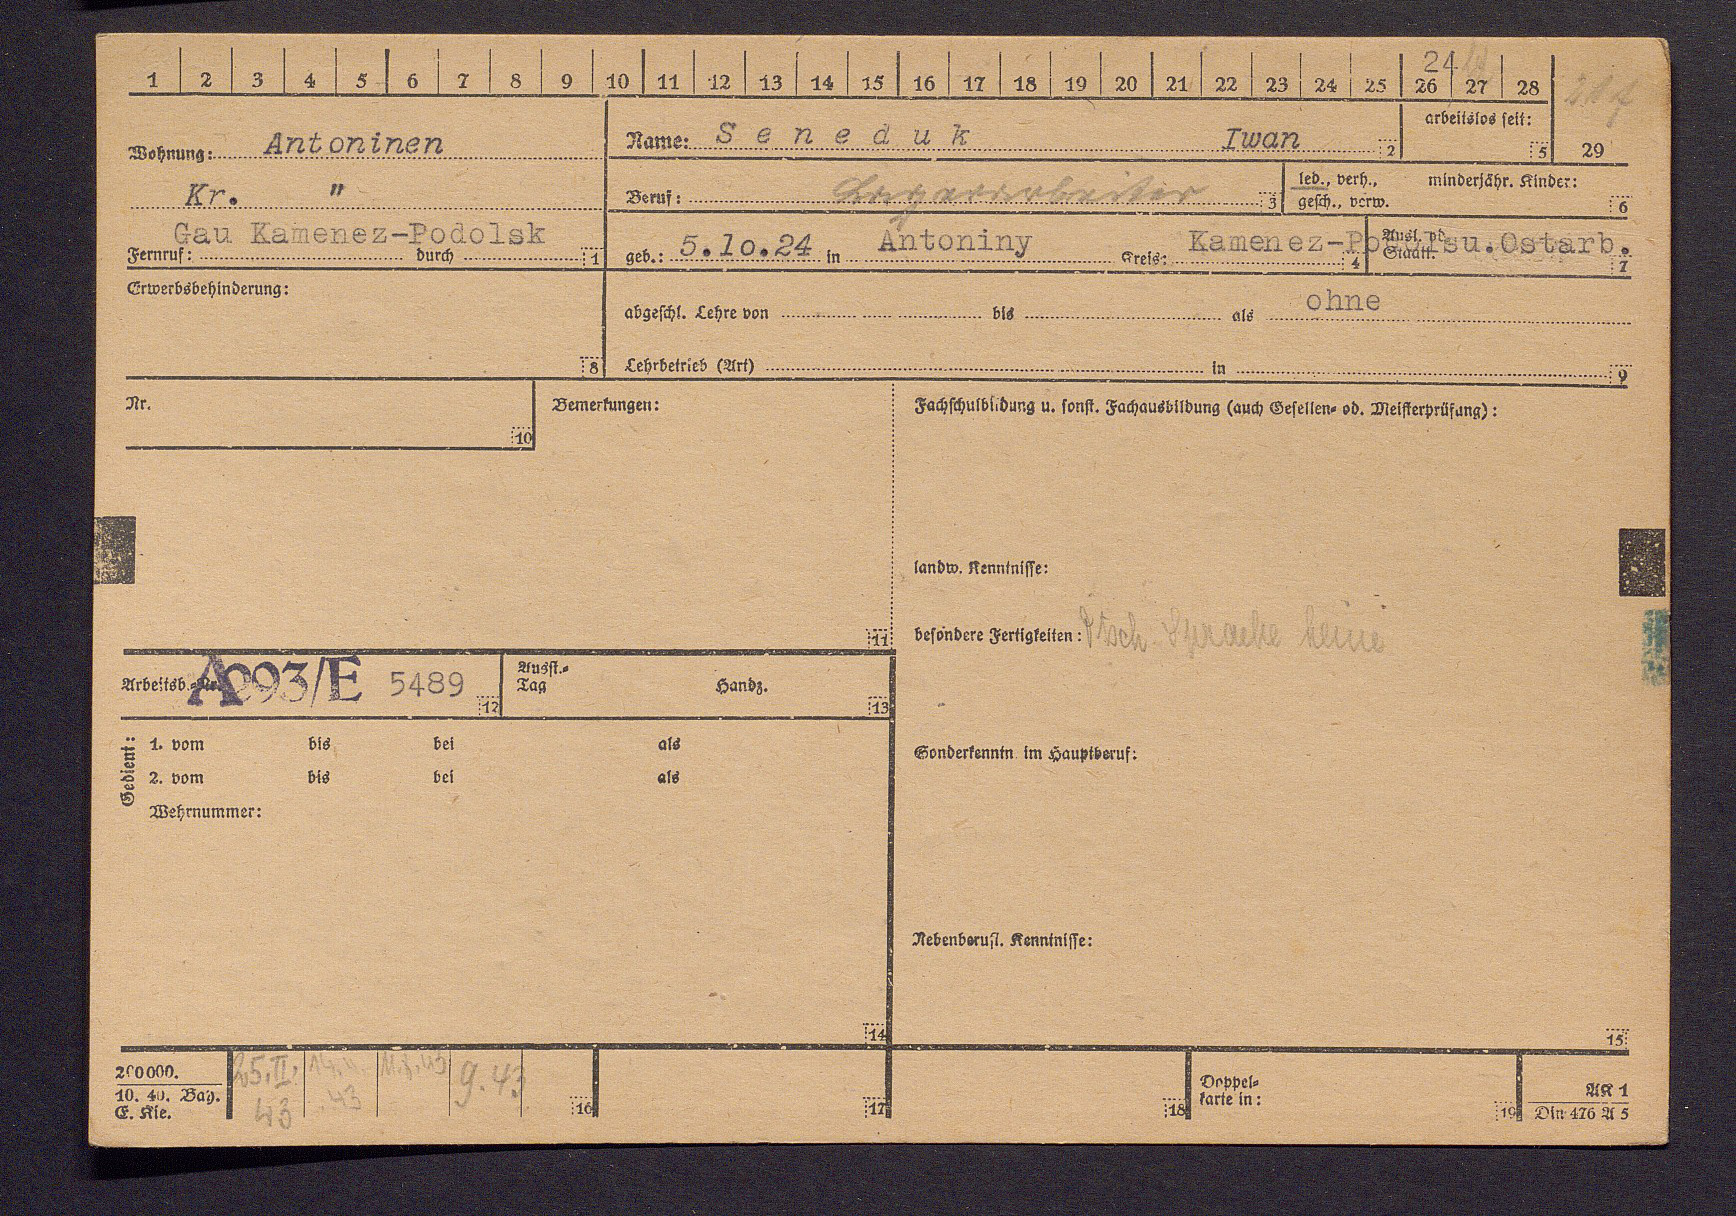 1 2 3 4 5 6 7 8 9 10 11 12 13 14 15 16 17 18 19 20 21 22 23 24 25 26 27 28
24
29
Wohnung: Antoninen
Kr. "
Gau Kamenez-Podolsk
Fernruf: durch 1
Name: Seneduk Iwan 2
arbeitslos seit: 5
Beruf: 3
led., verh., gesch., verw.
minderjähr. Kinder: 6
geb.: 5.10.24 in Antoniny Kreis: Kamenez-Podolsu.Ostarb. 4
Ausl. od. Staatl. 7
Erwerbsbehinderung: 8
abgeschl. Lehre von bis als ohne
Lehrbetrieb (Art) in 9
Nr. 10
Bemerkungen: 11
Fachschulbildung u. sonst. Fachausbildung (auch Gesellen- od. Meisterprüfung):
landw. Kenntnisse:
besondere Fertigkeiten: Dtsch. Sprache keine
Arbeitsb.-Nr. A093/E 5489 12
Ausst.-Tag Handz. 13
Gedient:
1. vom bis bei als
2. vom bis bei als
Wehrnummer:
Sonderkenntn. im Hauptberuf:
Nebenberufl. Kenntnisse:
14
15
200000.
10. 40. Bay.
E. Kie.
25.II.43
9.43
16
17
18
Doppelkarte in: 19
AK 1
Din 476 A 5